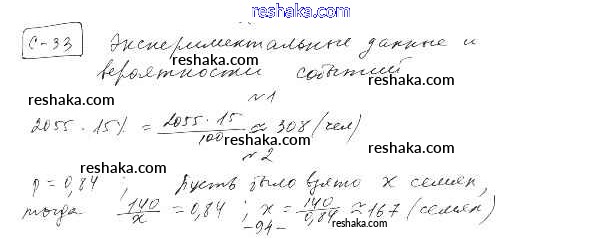 reshaka.com
С-33 Экспериментальные данные и
reshaka.com reshaka.com
вероятности событий
reshaka.com №1
2055 · 15% = 2055 · 15 / 100 ≈ 308 (чел)
reshaka.com
reshaka.com №2
reshaka.com
p = 0,84 ; Пусть было взято x семян,
тогда 140/x = 0,84 ; x = 140/0,84 ≈ 167 (семян)
-94- reshaka.com